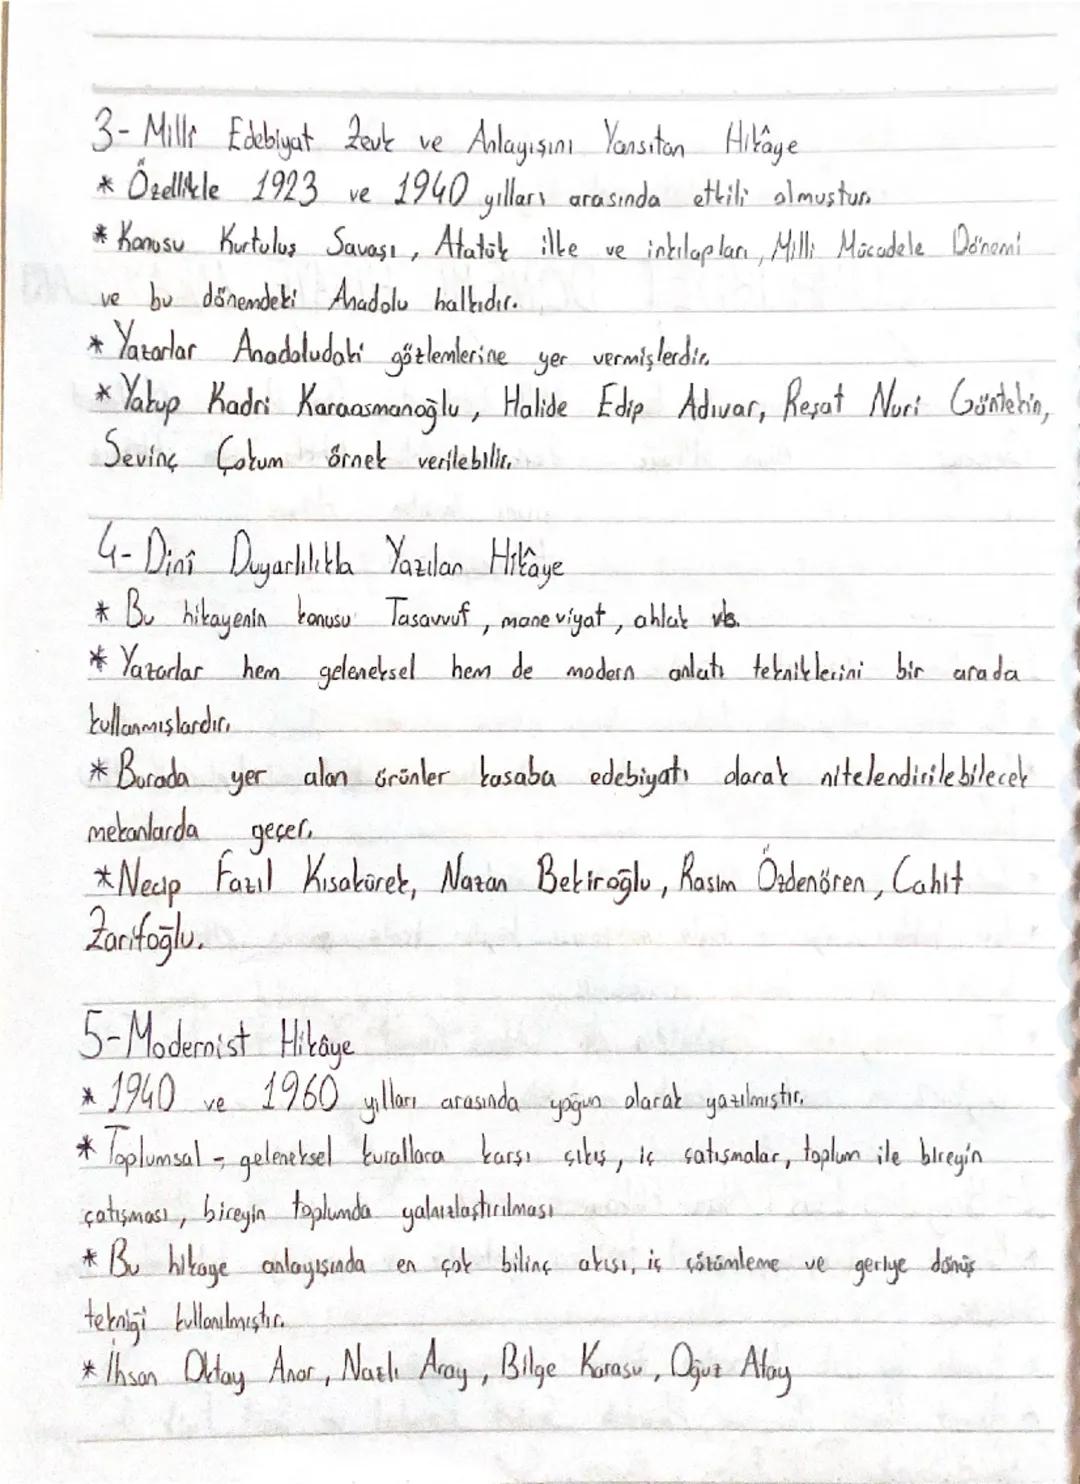 3- Millî Edebiyat Zevk ve Anlayışını Yansıtan Hikâye
* Özellikle 1923 ve 1940 yılları arasında etkili olmuştur.
* Konusu Kurtuluş Savaşı, Atatük ilke ve inkılapları, Milli Mücadele Dönemi
ve bu dönemdeki Anadolu halkıdır.
* Yazarlar Anadoludaki gözlemlerine yer vermişlerdir.
* Yakup Kadri Karaosmanoğlu, Halide Edip Adıvar, Reşat Nuri Güntekin,
Sevinç Çokum örnek verilebilir.
4- Dinî Duyarlılıkla Yazılan Hikâye
* Bu hikayenin konusu Tasavvuf, maneviyat, ahlak vb.
* Yazarlar hem geleneksel hem de modern anlatı tekniklerini bir arada
kullanmışlardır.
* Burada yer alan ürünler kasaba edebiyatı olarak nitelendirilebilecek
mekanlarda geçer.
* Necip Fazıl Kısakürek, Nazan Bekiroğlu, Rasim Özdenören, Cahit
Zarifoğlu.
5- Modernist Hikâye
* 1940 ve 1960 yılları arasında yoğun olarak yazılmıştır.
* Toplumsal - geleneksel kurallara karşı çıkış, iç çatışmalar, toplum ile bireyin
çatışması, bireyin toplumda yalnızlaştırılması
* Bu hikaye anlayışında en çok bilinç akışı, iç çözümleme ve geriye dönüş
tekniği kullanılmıştır.
* İhsan Oktay Anar, Nazlı Aray, Bilge Karasu, Oğuz Atay